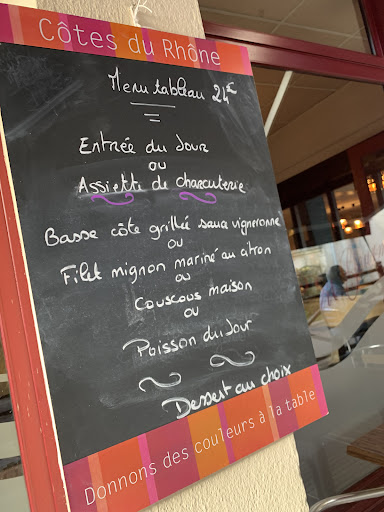 Côtes du Rhône
Menu tableau 24€
Entrée du Jour
ou
Assiette de charcuterie
Basse côte grillé sauce vigneronne
ou
Filet mignon mariné au citron
ou
Couscous maison
ou
Poisson du Jour
Dessert au choix
Donnons des couleurs à la table